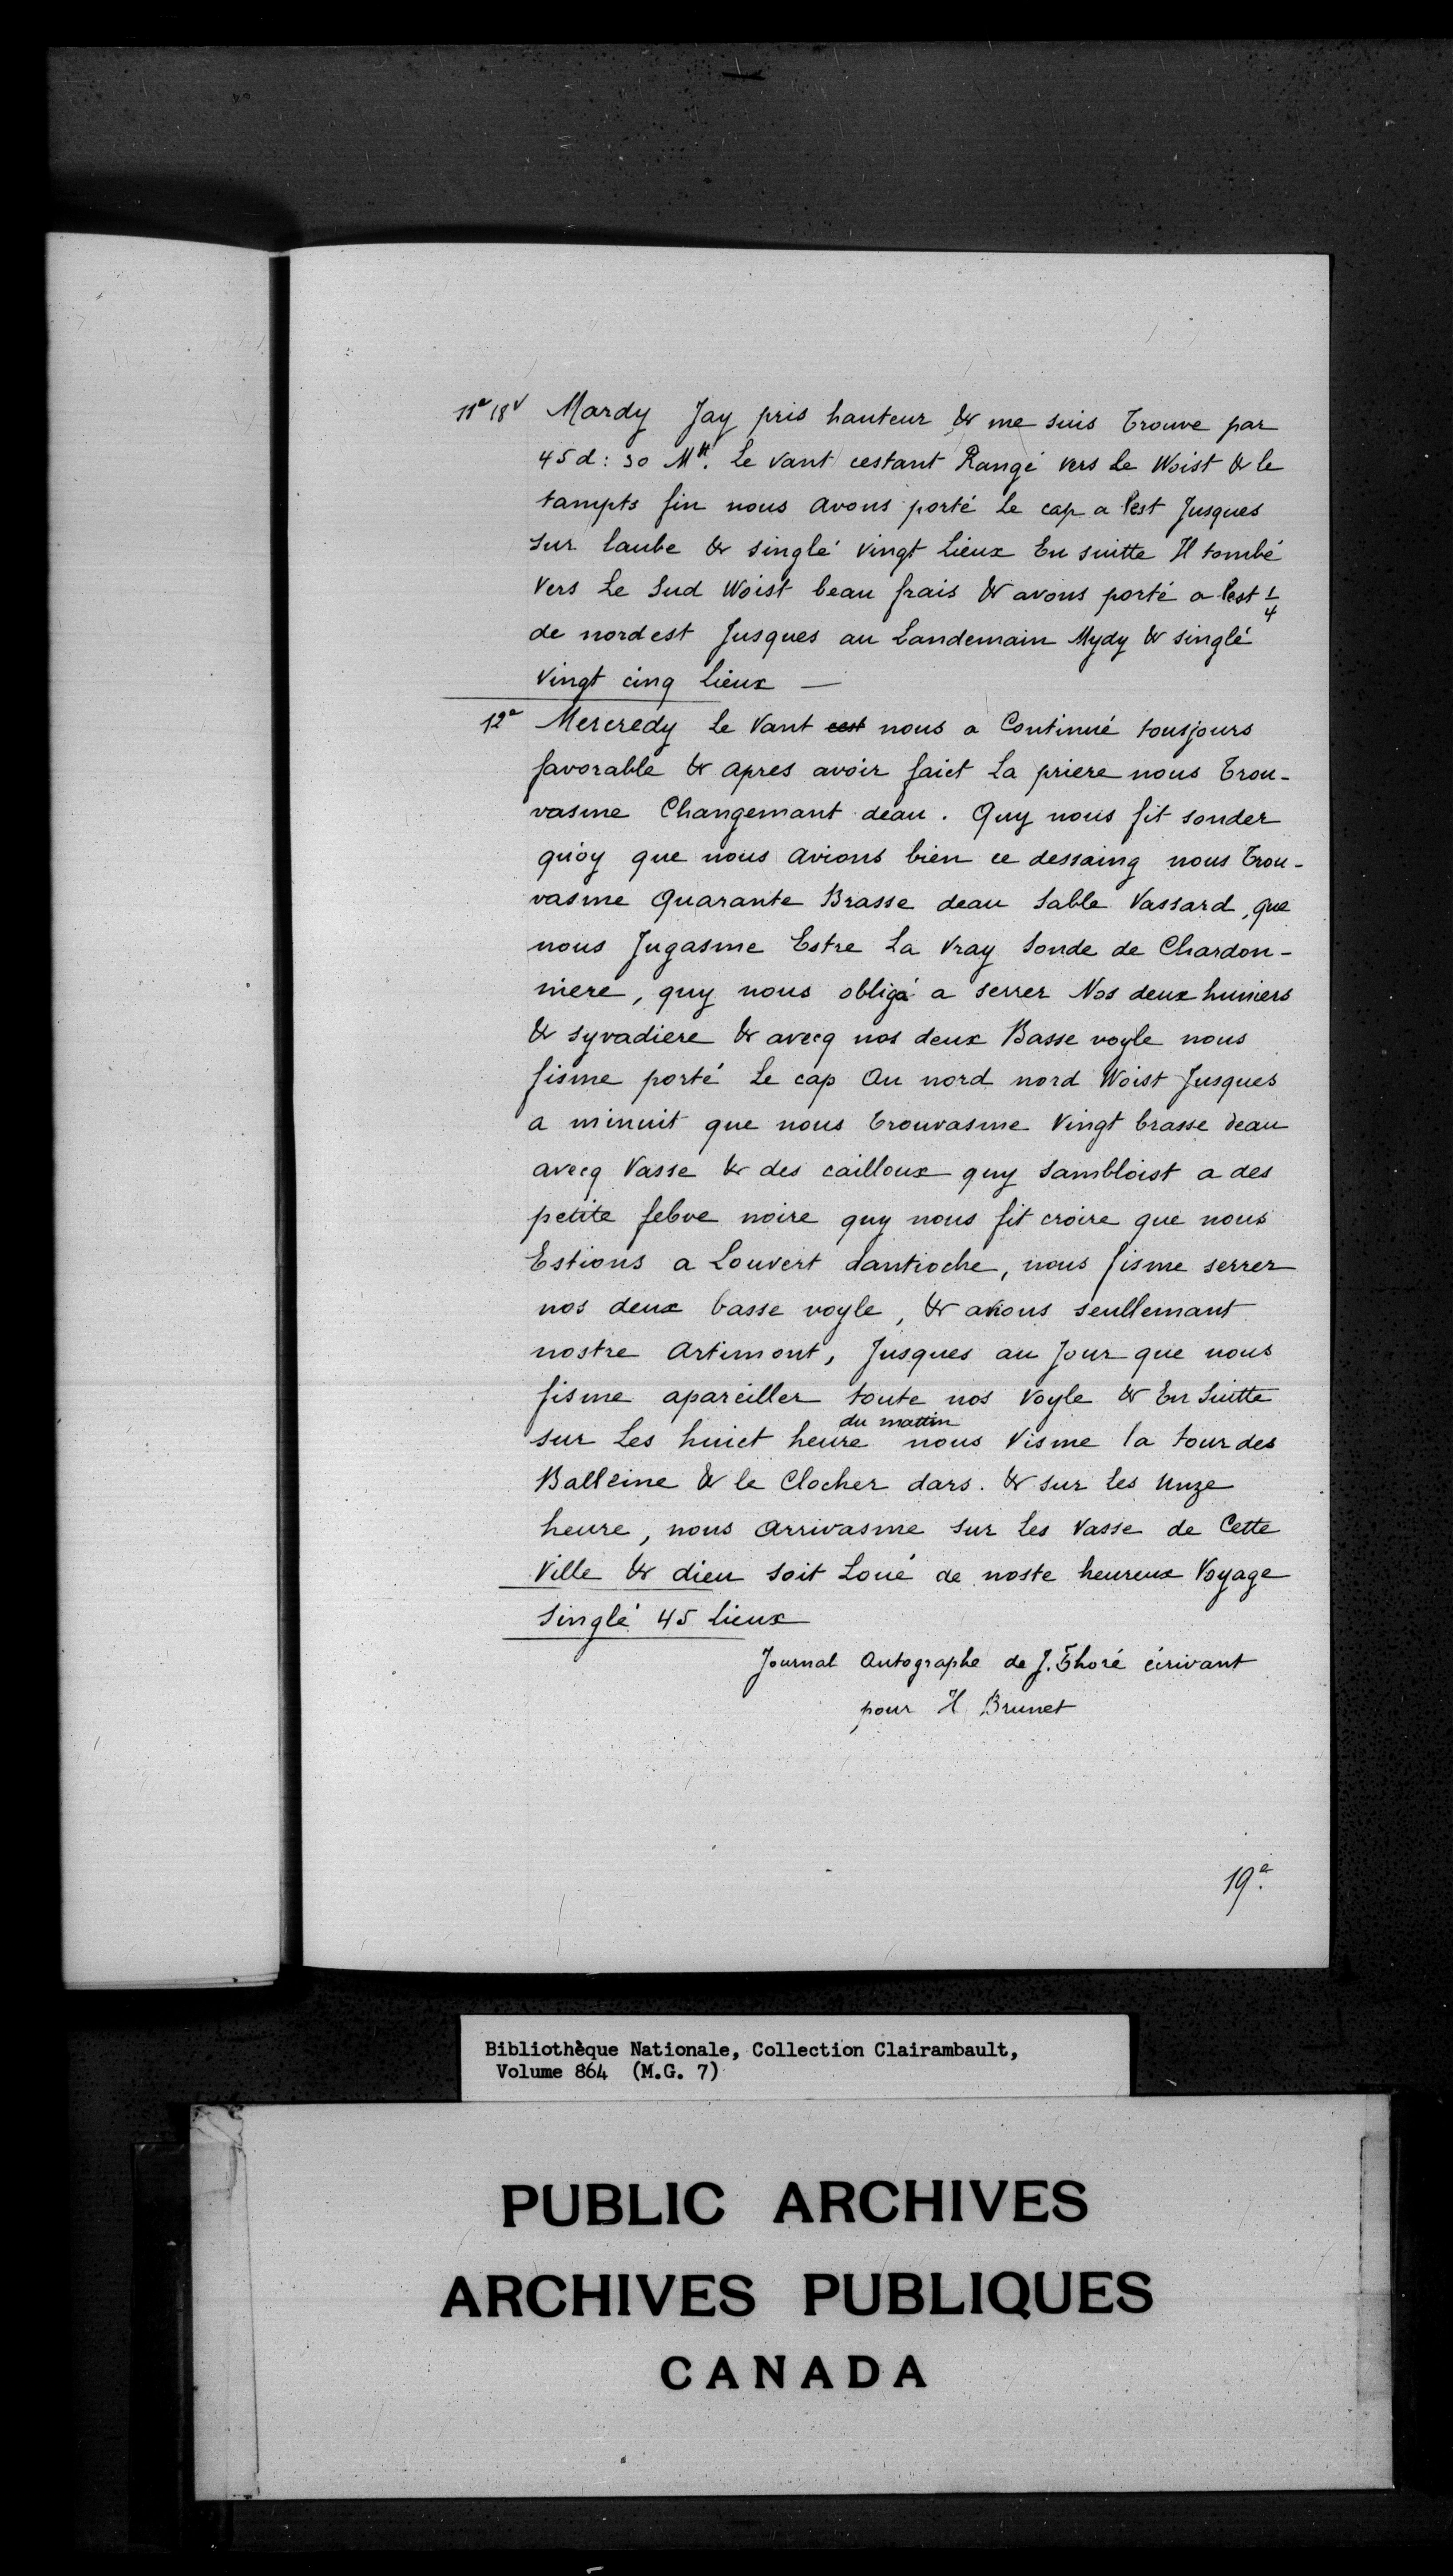 11e 18v Mardy Jay pris hauteur & me suis trouve par
45 d: 30 Mtt. Le vant cestant Rangé vers Le Woist & le
tampts fin nous avons porté Le cap a lest Jusques
sur laube & singlé vingt Lieux En suitte Il tombé
vers Le Sud Woist beau frais & avons porté a lest 1/4
de nordest Jusques au Landemain Mydy & singlé
vingt cinq lieux —
12e Mercredy Le vant cest nous a Continué tousjours
favorable & apres avoir faict La priere nous trou-
vasme Changemant deau. Quy nous fit sonder
quoy que nous avions bien ce dessaing nous trou-
vasme Quarante Brasse deau Sable Vassard, que
nous Jugasme Estre La vray Sonde de Chardon-
niere, quy nous obliga a serrer Nos deux huniers
& syvadiere & avecq nos deux Basse voyle nous
fisme porté Le cap Au nord nord Woist Jusques
a minuit que nous trouvasme vingt brasse deau
avecq Vasse & des cailloux quy sambloist a des
petite febve noire quy nous fit croire que nous
Estions a Louvert dantioche, nous fisme serrer
nos deux basse voyle, & avions seullemant
nostre Artimont, Jusques au Jour que nous
fisme apareiller toute nos voyle & En Suitte
du mattin
sur Les huict heure nous Visme la tour des
Balleine & le Clocher dars. & sur Les unze
heure, nous Arrivasme sur Les vasse de Cette
Ville & dieu soit Loué de noste heureux Voyage
Singlé 45 Lieux
Journal Autographe de J. Thoré écrivant
pour H Brunet
19e.
Bibliothèque Nationale, Collection Clairambault,
Volume 864 (M.G. 7)
PUBLIC ARCHIVES
ARCHIVES PUBLIQUES
CANADA